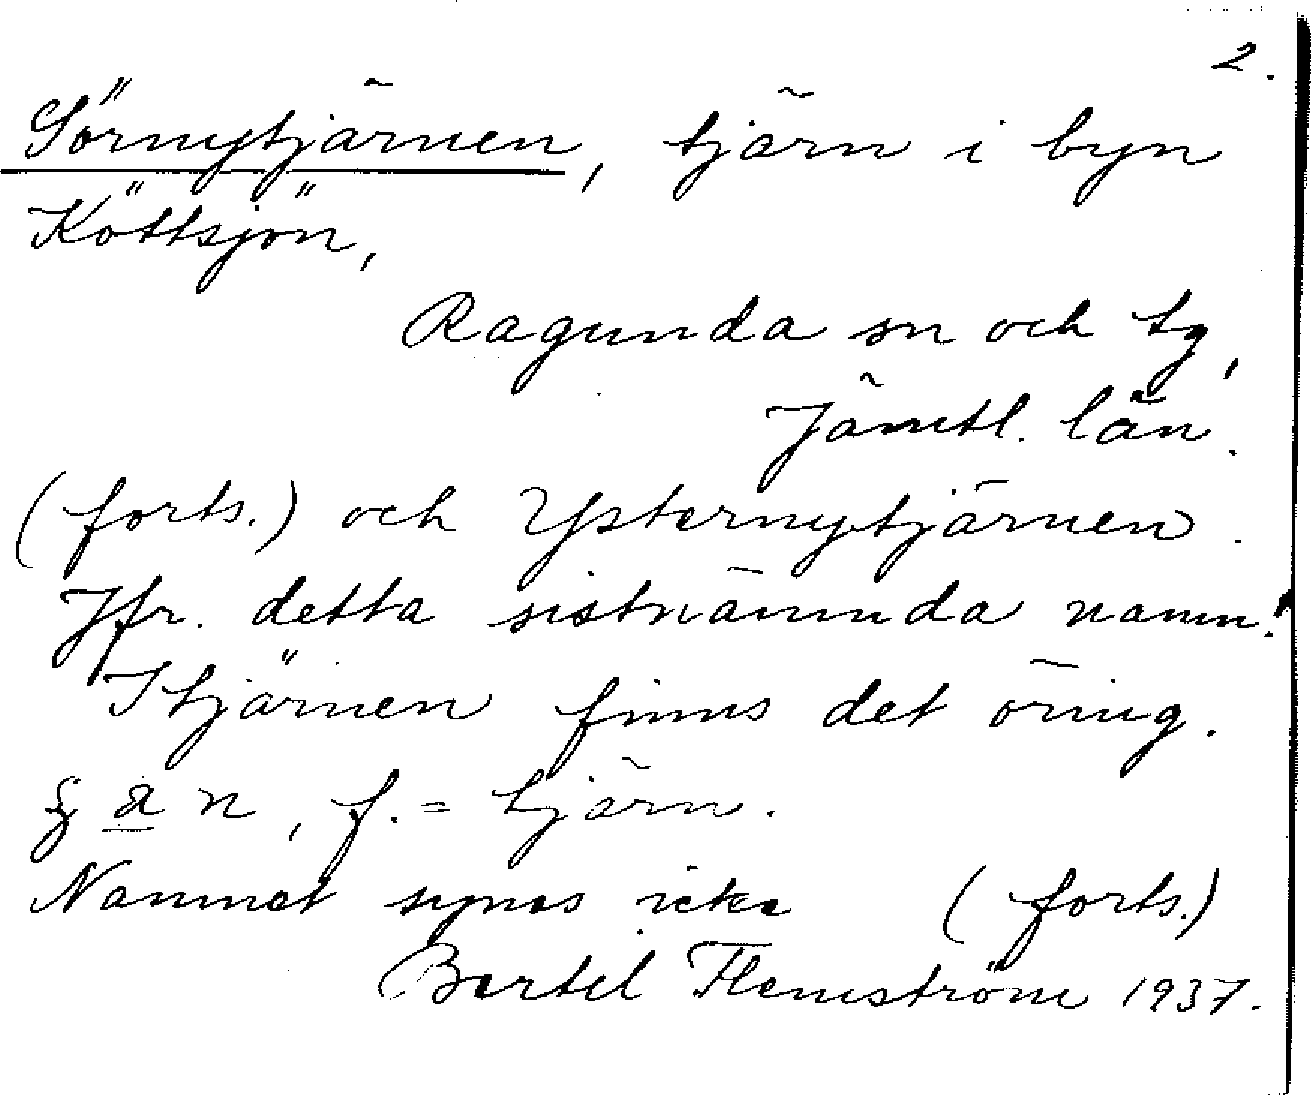 2.
Sörnytjärnen, tjärn i byn
Köttsjön,
Ragunda sn och tg,
Jämtl. län.
(forts.) och Ysternytjärnen.
Jfr. detta sistnämnda namn!
I tjärnen finns det öring.
a n, f. = tjärn.
Namnet synes icke (forts.)
Bertil Flemström 1937.